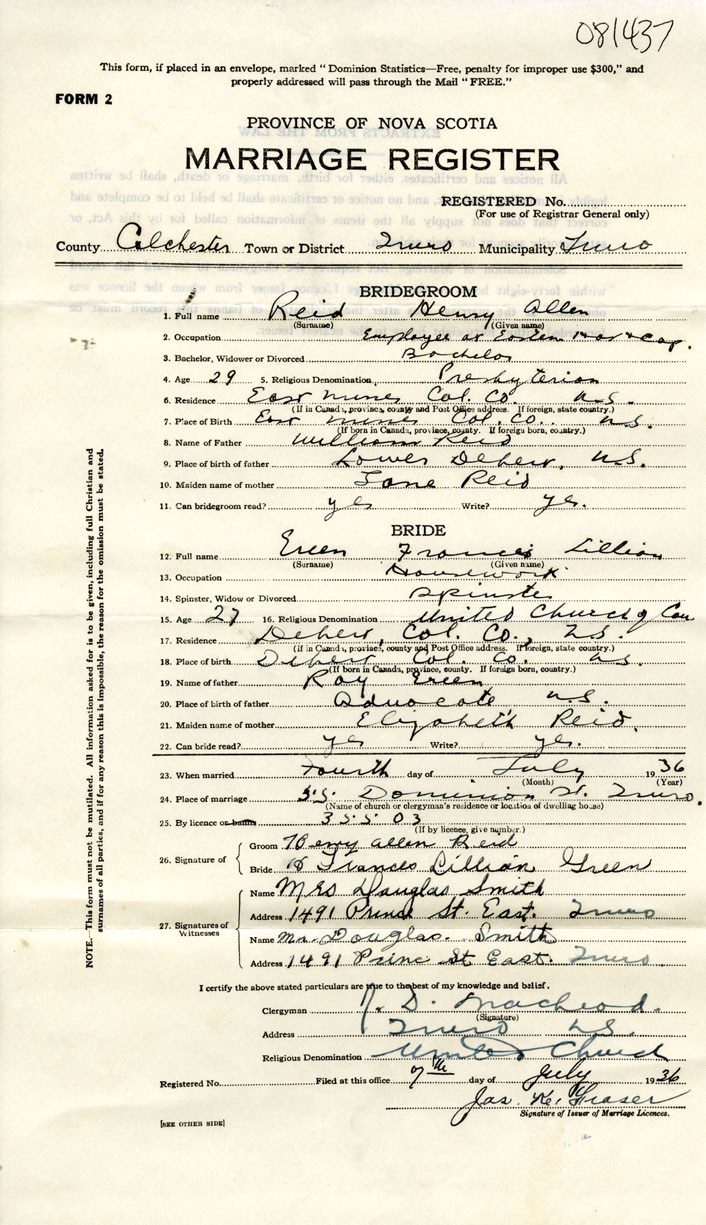 081437
This form, if placed in an envelope, marked "Dominion Statistics—Free, penalty for improper use $300," and
properly addressed will pass through the Mail "FREE."
FORM 2
PROVINCE OF NOVA SCOTIA
MARRIAGE REGISTER
REGISTERED No.
(For use of Registrar General only)
County Colchester Town or District Truro Municipality Truro
BRIDEGROOM
1. Full name Reid Henry Allen
(Surname) (Given name)
2. Occupation Employee at Eastern Hat & Cap.
3. Bachelor, Widower or Divorced Bachelor
4. Age 29 5. Religious Denomination Presbyterian
6. Residence East Mines Col. Co. N.S.
(If in Canada, province, county and Post Office address. If foreign, state country.)
7. Place of Birth East Mines Col. Co. N.S.
(If born in Canada, province, county. If foreign born, country.)
8. Name of Father William Reid
9. Place of birth of father Lower Debert, N.S.
10. Maiden name of mother Jane Reid
11. Can bridegroom read? yes Write? yes.
BRIDE
12. Full name Green Frances Lillian
(Surname) (Given name)
13. Occupation Housework
14. Spinster, Widow or Divorced Spinster
15. Age 27 16. Religious Denomination United Church of Can
17. Residence Debert, Col. Co., N.S.
(if in Canada, province, county and Post Office address. If foreign, state country.)
18. Place of birth Debert Col. Co. N.S.
(If born in Canada, province, county. If foreign born, country.)
19. Name of father Roy Green
20. Place of birth of father Advocate N.S.
21. Maiden name of mother Elizabeth Reid.
22. Can bride read? yes Write? yes.
23. When married Fourth day of July 1936
(Month) (Year)
24. Place of marriage Dominion St. Truro.
(Name of church or clergyman's residence or location of dwelling house)
25. By licence or banns 35503
(If by licence, give number.)
26. Signature of
Groom Henry Allen Reid
Bride Frances Lillian Green
27. Signatures of Witnesses
Name Mrs Douglas Smith
Address 1491 Prince St. East. Truro
Name Mr. Douglas Smith
Address 1491 Prince St East. Truro
I certify the above stated particulars are true to the best of my knowledge and belief.
Clergyman D. MacLeod.
(Signature)
Address Truro N.S.
Religious Denomination United Church
Registered No. Filed at this office 7th day of July 1936
Jas. K. Fraser
Signature of Issuer of Marriage Licences.
[SEE OTHER SIDE]
NOTE.—This form must not be mutilated. All information asked for is to be given, including full Christian and
surnames of all parties, and if for any reason this is impossible, the reason for the omission must be stated.